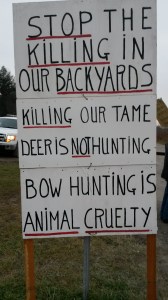 STOP THE
KILLING IN
OUR BACKYARDS
KILLING OUR TAME
DEER IS NOT HUNTING
BOW HUNTING IS
ANIMAL CRUELTY